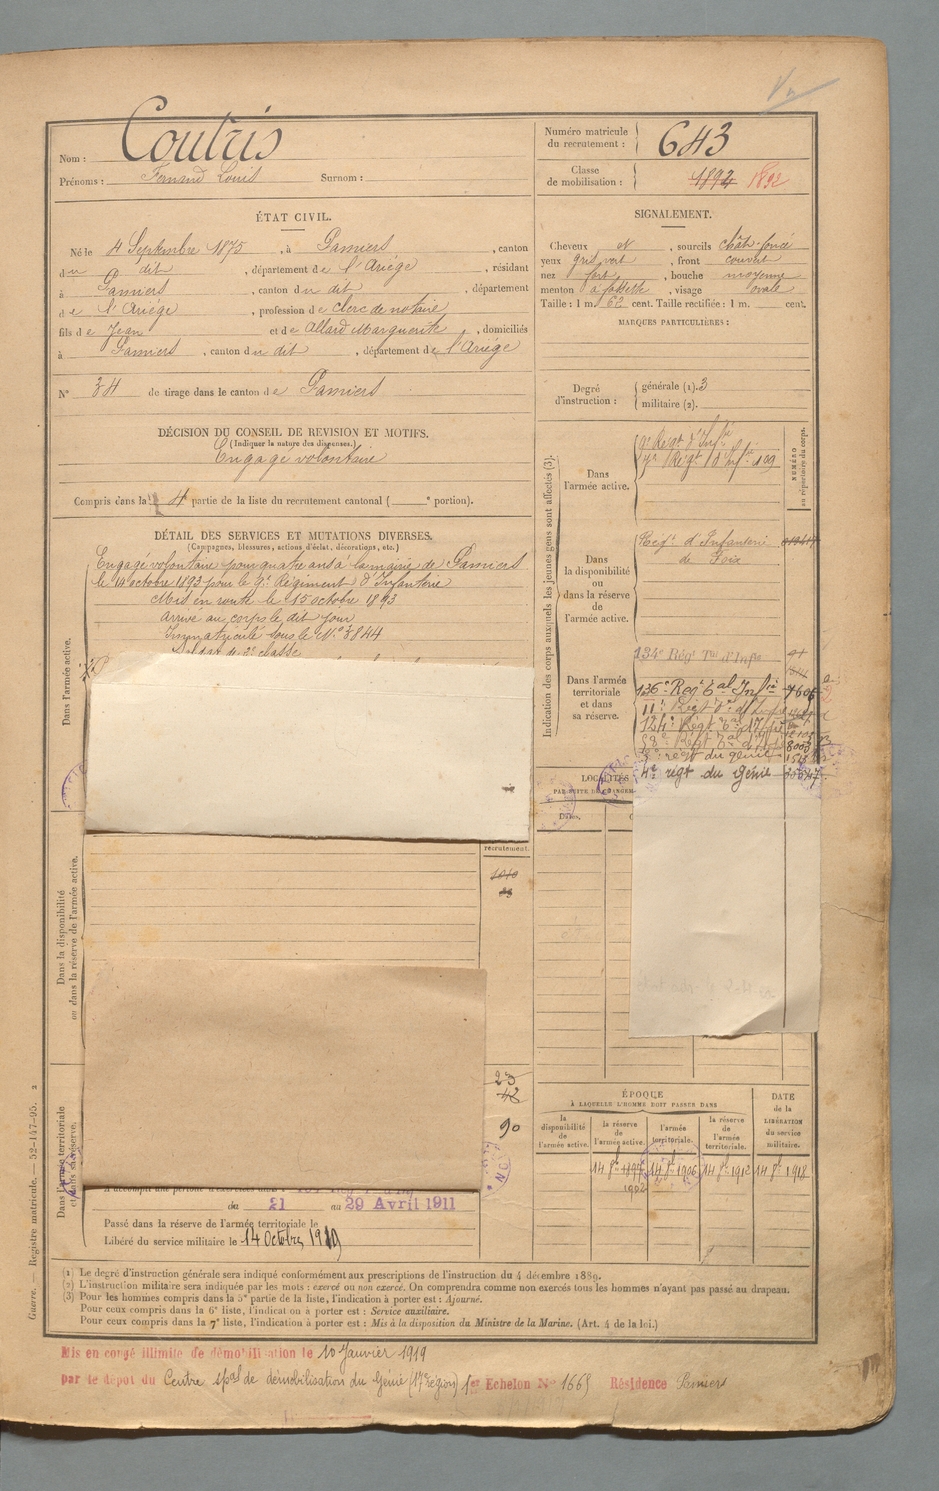 Nom : Coutris
Prénoms : Fernand Louis Surnom :
Numéro matricule du recrutement : 643
Classe de mobilisation : 1892 1892
ÉTAT CIVIL.
Né le 4 Septembre 1875, à Pamiers, canton
du dit, département de l'Ariége, résidant
à Pamiers, canton du dit, département
de l'Ariége, profession de clerc de notaire
fils de Jean et de Allard Marguerite, domiciliés
à Pamiers, canton du dit, département de l'Ariége
N° 34 de tirage dans le canton de Pamiers
SIGNALEMENT.
Cheveux N, sourcils chât-foncé
yeux gris vert, front couvert
nez fort, bouche moyenne
menton à fossette, visage ovale
Taille : 1 m. 62 cent. Taille rectifiée : 1 m. cent.
MARQUES PARTICULIÈRES :
Degré d'instruction : générale (1). 3
militaire (2).
DÉCISION DU CONSEIL DE REVISION ET MOTIFS.
(Indiquer la nature des dispenses.)
Engagé volontaire
Compris dans la 4 partie de la liste du recrutement cantonal ( e portion).
DÉTAIL DES SERVICES ET MUTATIONS DIVERSES.
(Campagnes, blessures, actions d'éclat, décorations, etc.)
Engagé volontaire pour quatre ans à la mairie de Pamiers
le 14 octobre 1893 pour le 9e Régiment d'Infanterie
Mis en route le 15 octobre 1893
Arrivé au corps le dit jour
Immatriculé sous le N° 3844
Soldat de 2e classe
Dans l'armée active.
Dans la disponibilité
ou dans la réserve de l'armée active.
Dans l'armée territoriale
et dans sa réserve.
recrutement.
1010
23
42
90
du 21 au 29 Avril 1911
Passé dans la réserve de l'armée territoriale le
Libéré du service militaire le 14 Octobre 1919
Indication des corps auxquels les jeunes gens sont affectés (3).
NUMÉRO
au répertoire du corps.
Dans l'armée active.
9e Régt d'Infie
Dans la disponibilité ou dans la réserve de l'armée active.
Regt d'Infanterie
de Foix
Dans l'armée territoriale et dans sa réserve.
134e Régt Tal d'Infie
136e Regt Tal Infie
4e régt du Génie
LOCALITÉS
Dates.
ÉPOQUE
À LAQUELLE L'HOMME DOIT PASSER DANS
la disponibilité de l'armée active.
la réserve de l'armée active.
l'armée territoriale.
la réserve de l'armée territoriale.
DATE de la LIBÉRATION du service militaire.
(1) Le degré d'instruction générale sera indiqué conformément aux prescriptions de l'instruction du 4 décembre 1889.
(2) L'instruction militaire sera indiquée par les mots : exercé ou non exercé. On comprendra comme non exercés tous les hommes n'ayant pas passé au drapeau.
(3) Pour les hommes compris dans la 5e partie de la liste, l'indication à porter est : Ajourné.
Pour ceux compris dans la 6e liste, l'indication à porter est : Service auxiliaire.
Pour ceux compris dans la 7e liste, l'indication à porter est : Mis à la disposition du Ministre de la Marine. (Art. 4 de la loi.)
Guerre. — Registre matricule. — 52-147-95. 2
Mis en congé illimité de démobilisation le 10 Janvier 1919
par le dépôt du Centre spal de démobilisation du Génie (17e région) 1er Echelon N° 1665 Résidence Pamiers